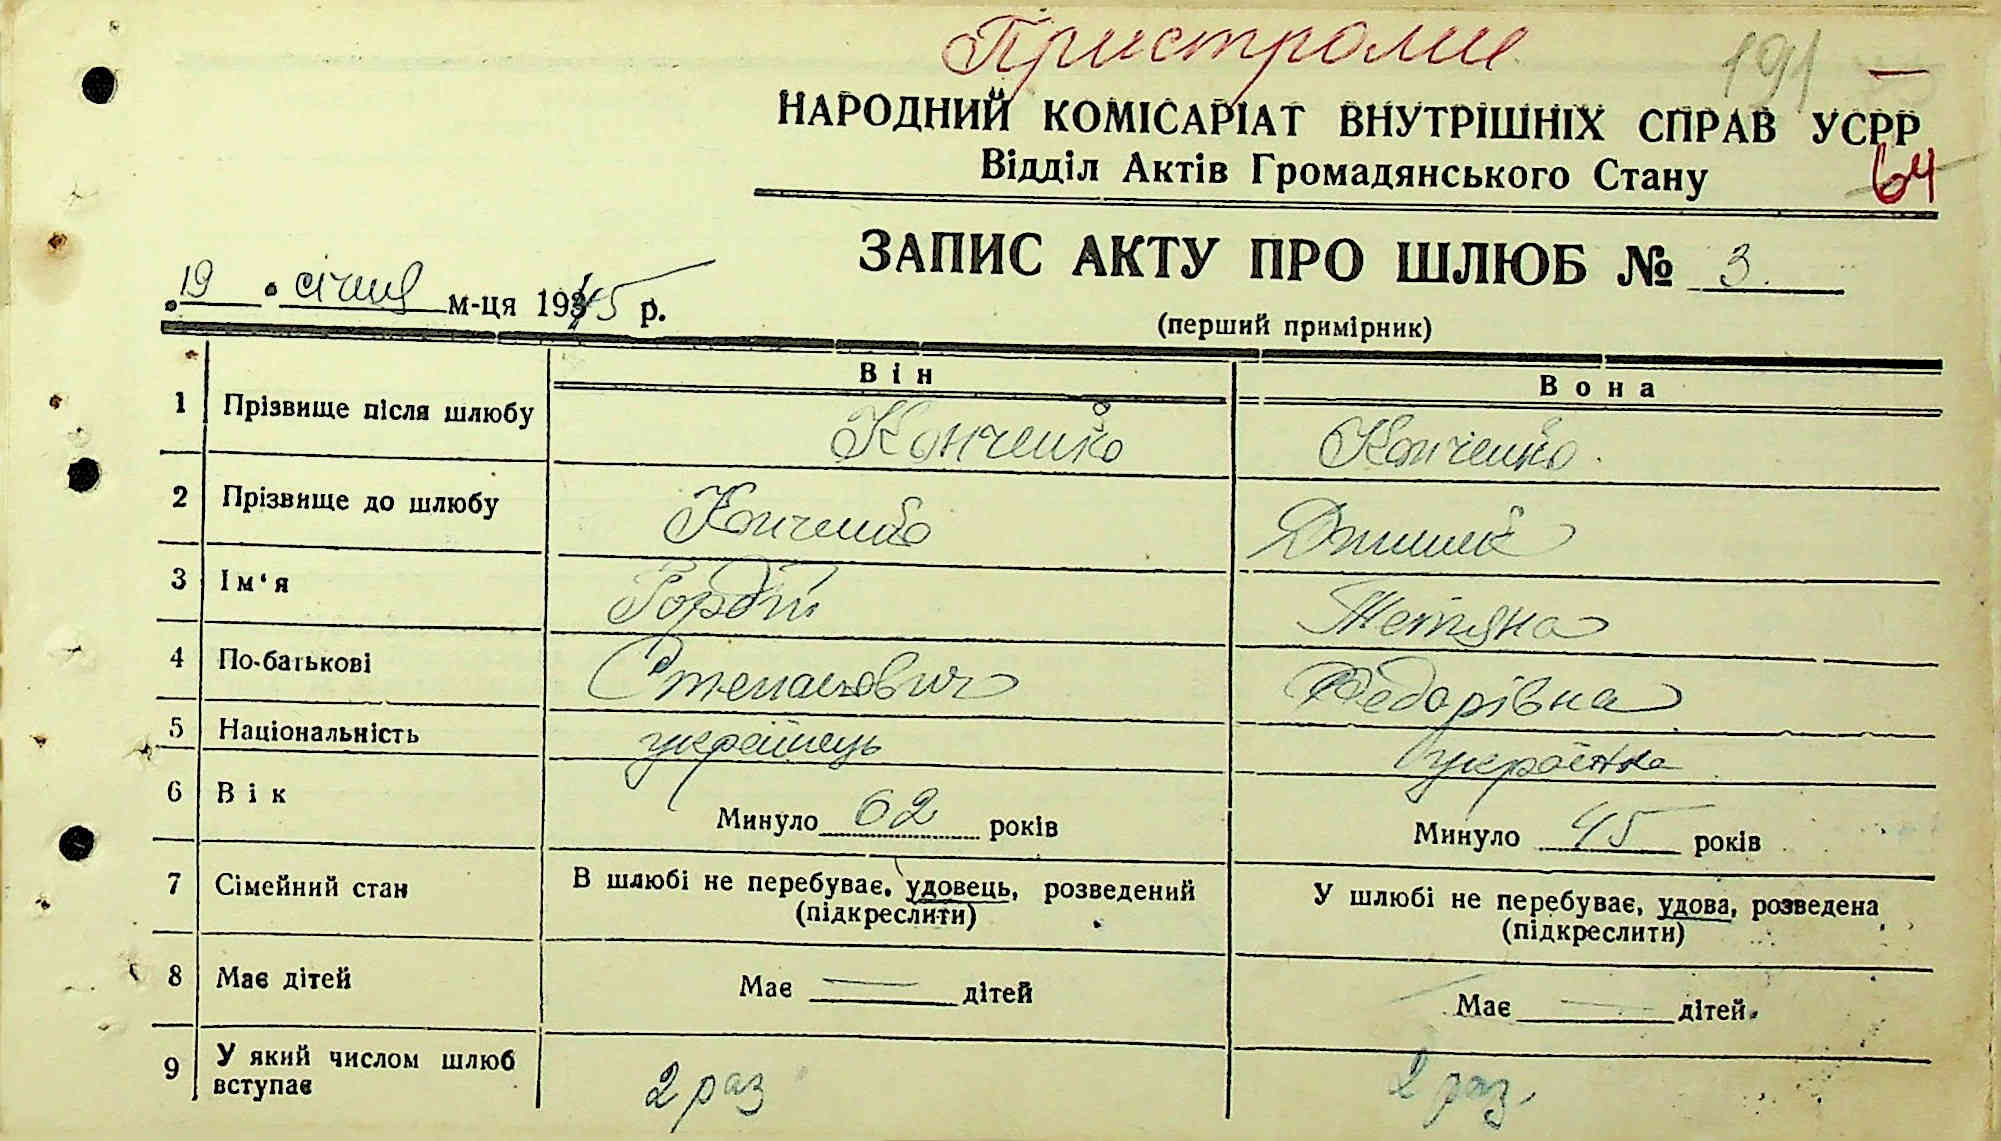 Пристроми
191
НАРОДНИЙ КОМІСАРІАТ ВНУТРІШНІХ СПРАВ УСРР
Відділ Актів Громадянського Стану
64
ЗАПИС АКТУ ПРО ШЛЮБ № 3
19 січня м-ця 1945 р.
(перший примірник)
Він Вона
1 Прізвище після шлюбу Конченко Конченко
2 Прізвище до шлюбу Конченко
3 Ім'я Гордій Тетяна
4 По-батькові Степанович Федорівна
5 Національність українець українка
6 Вік Минуло 62 років Минуло 45 років
7 Сімейний стан В шлюбі не перебуває, удовець, розведений У шлюбі не перебуває, удова, розведена
(підкреслити) (підкреслити)
8 Має дітей Має — дітей Має — дітей
9 У який числом шлюб вступає 2 раз 2 раз